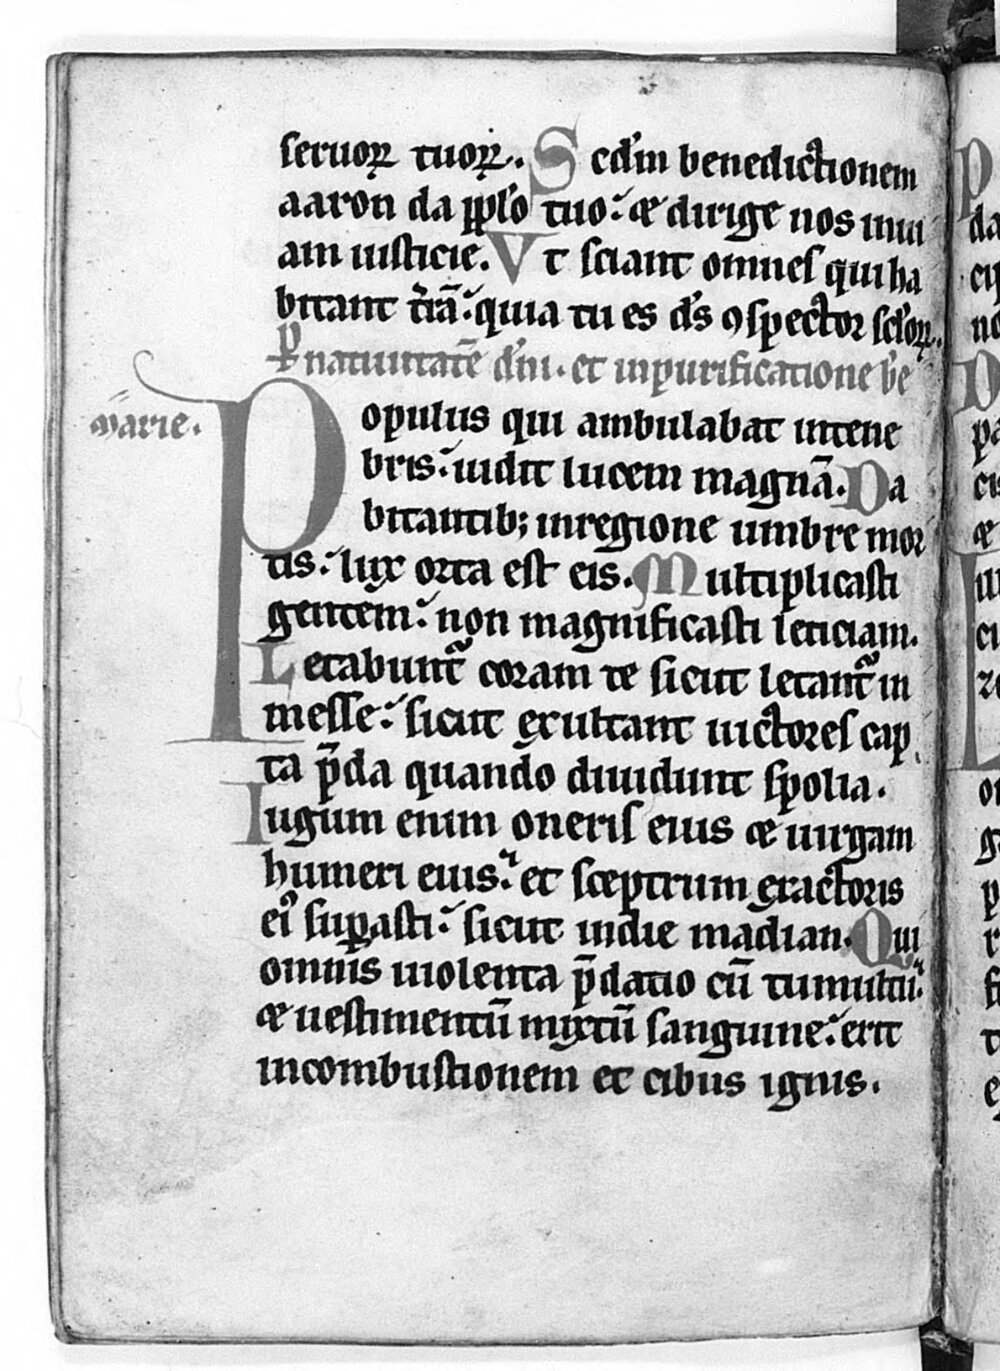 seruoꝝ tuoꝝ. Scd'm benedictionem
aaron da pplo tuo: & dirige nos inui
am iusticie. Vt sciant omnes qui ha
bitant t'rā: quia tu es d's ꝯspector sc'loꝝ.
natiuitatē d'ni. et in purificatione b'e
marie.
Populus qui ambulabat in tene
bris: uidit lucem magnā. Ha
bitantib; in regione umbre mor
tis: lux orta est eis. Multiplicasti
gentem: non magnificasti leticiam.
Letabunt᷑ coram te sicut letant᷑ in
messe: sicut exultant uictores cap
ta p̄da quando diuidunt spolia.
Iugum enim oneris eius & uirgam
humeri eius: et sceptrum exactoris
ei᷒ suꝑasti: sicut in die madian. Qui
omnis uiolenta p̄datio cū tumultu:
& uestimentū mixtū sanguine: erit
in combustionem et cibus ignis.